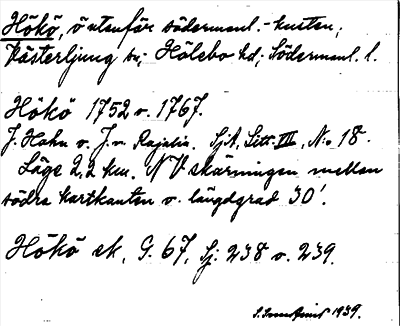 Hökö, ö utanför södermanl.-kusten;
Västerljung sn; Hölebo hd; Södermanl. l.
Hökö 1752 o. 1767.
J. Hahn o. J. v. Rajalin. SjA, Litt. III, N:o 18.
Läge 2,2 km. NV skärningen mellan
södra kartkanten o. längdgrad 30'.
Hökö ek, G. 67, Sj: 238 o. 239.
1939.